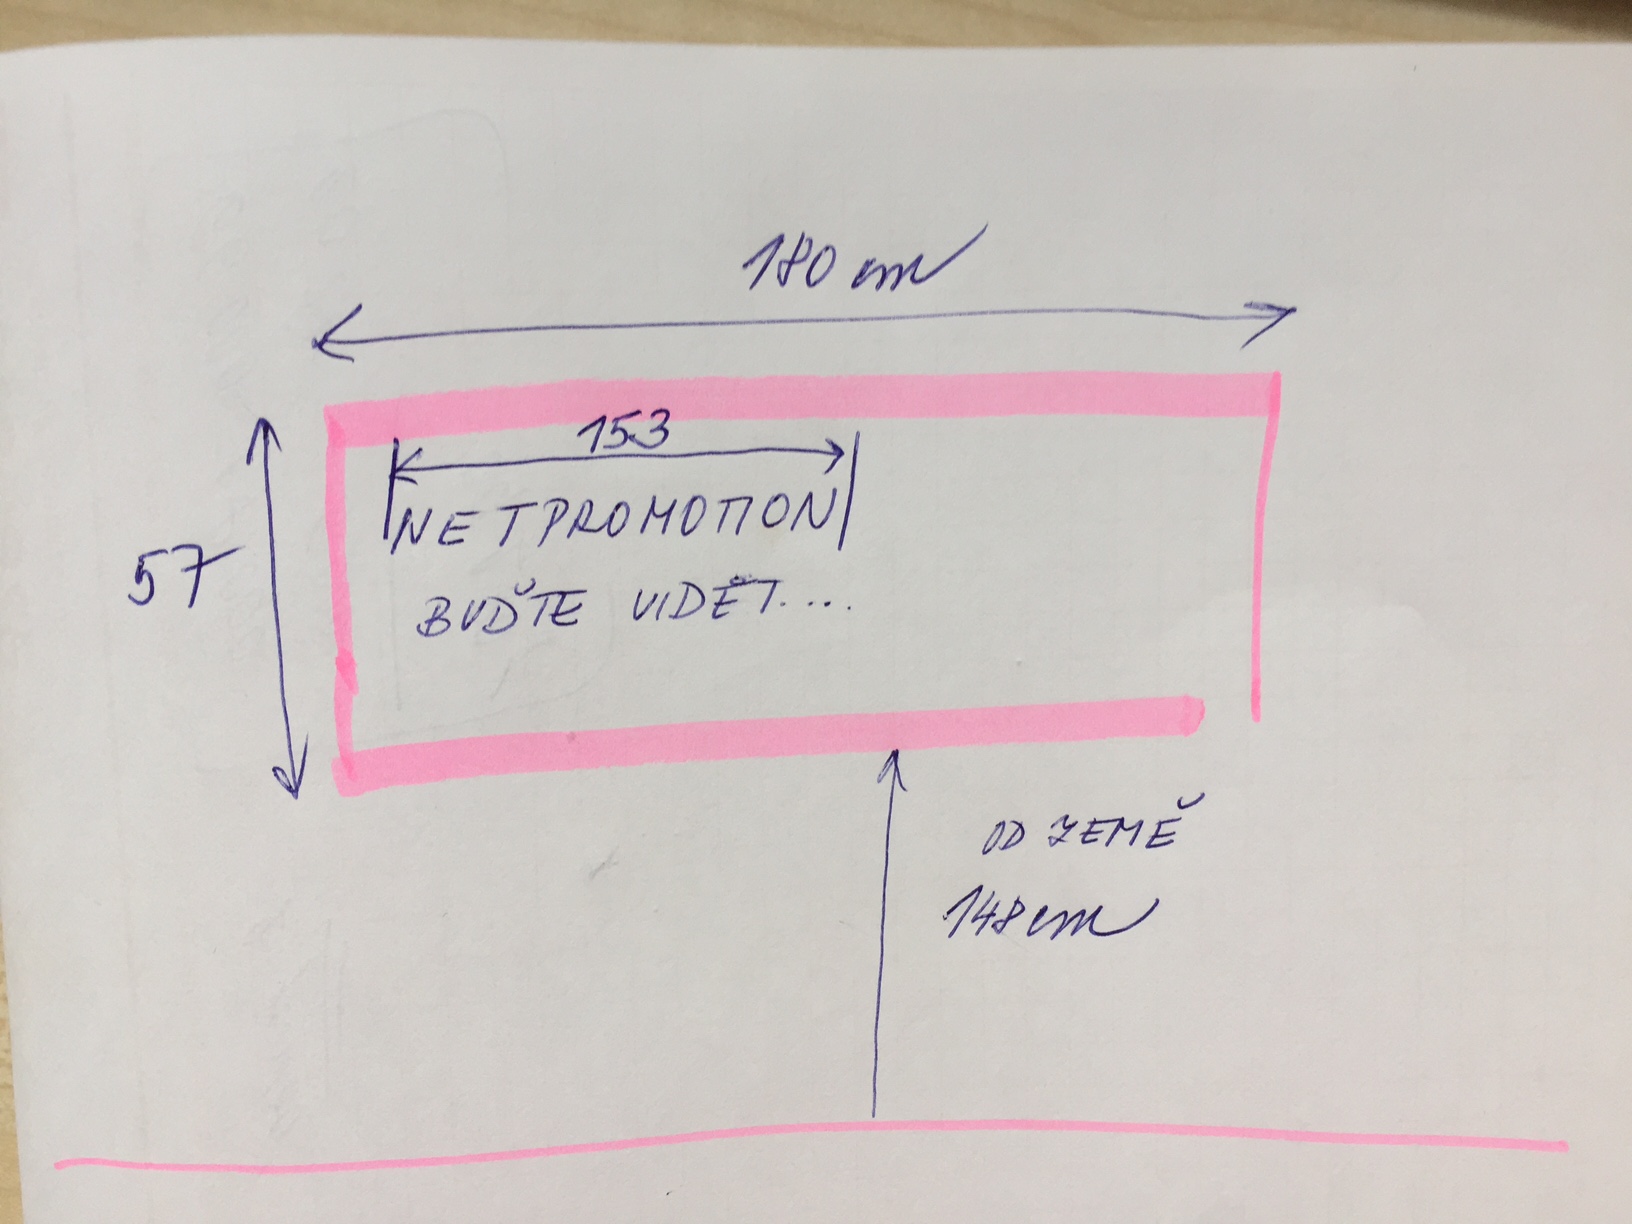 180 cm
57
153
NETPROMOTION
BUĎTE VIDĚT...
OD ZEMĚ
148 cm